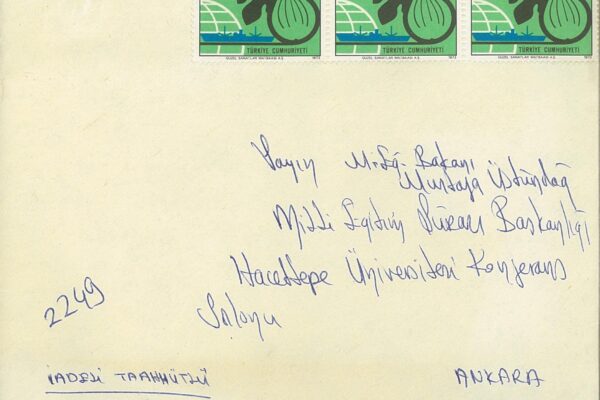 TÜRKİYE CUMHURİYETİ TÜRKİYE CUMHURİYETİ TÜRKİYE CUMHURİYETİ
GÜZEL SANATLAR MATBAASI A.Ş. 1973 GÜZEL SANATLAR MATBAASI A.Ş. 1973 GÜZEL SANATLAR MATBAASI A.Ş. 1973
Sayın M.Eğ. Bakanı
Mustafa Üstündağ
Milli Eğitim Şûrası Başkanlığı
Hacettepe Üniversitesi Konferans
Salonu
2249
İADELİ TAAHHÜTLÜ
ANKARA